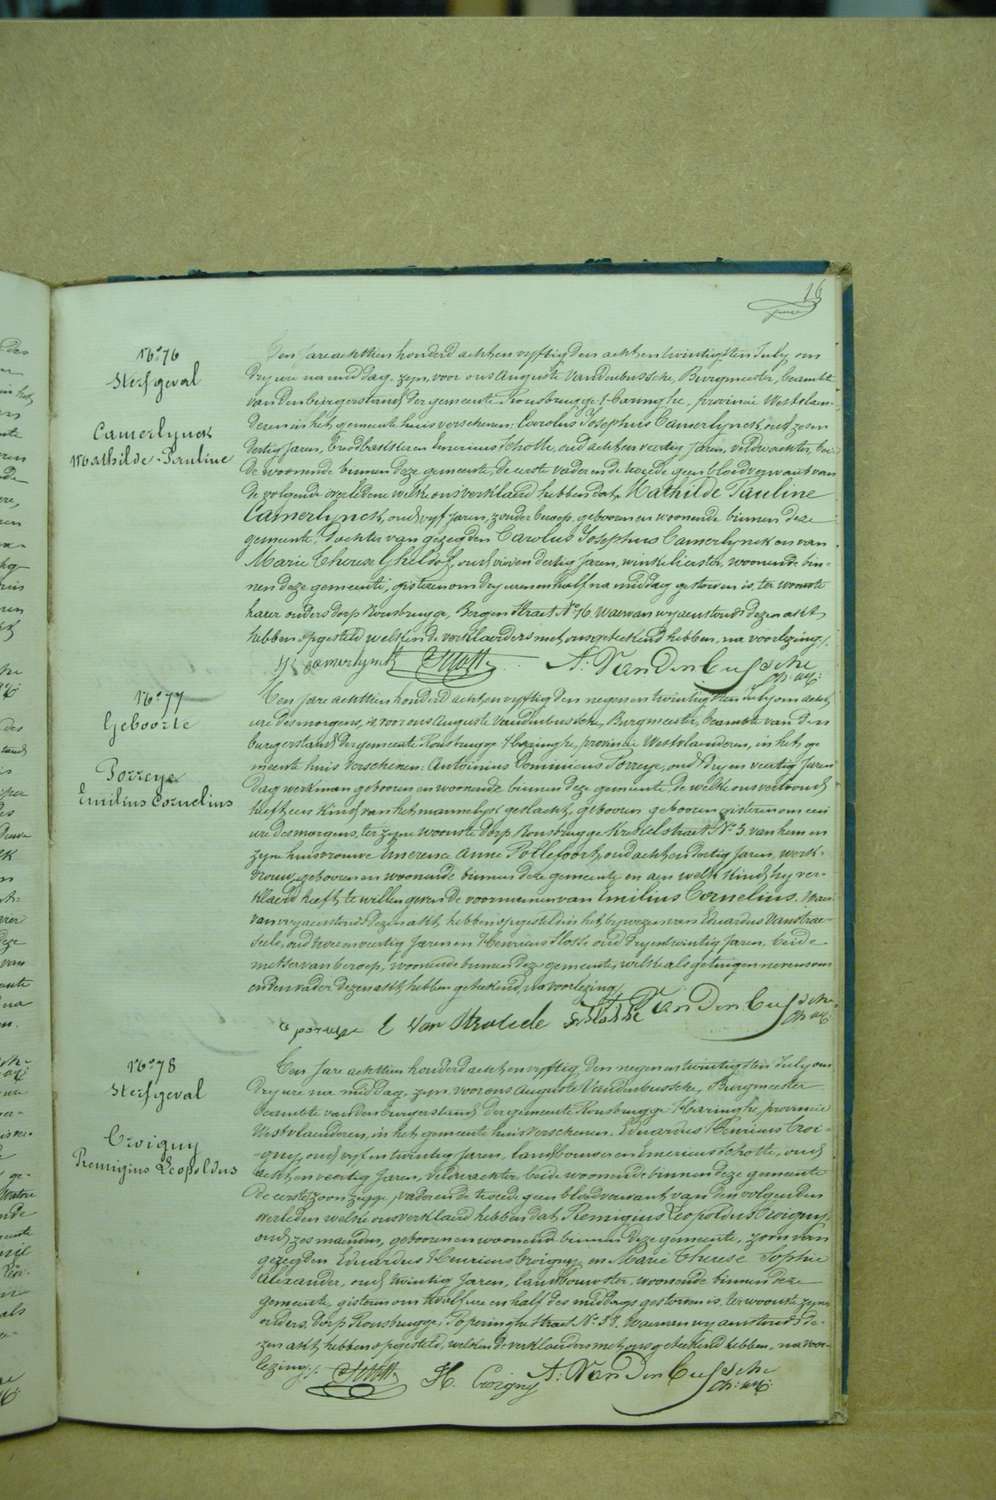 16
N° 76
Sterfgeval
Camerlynck
Mathilde Pauline
Den Jare achttien honderd acht en vyftig den acht en twintigsten July om
dry ure na middag, zyn, voor ons Auguste Vandenbussche, Burgmeester, beambte
van den burgerstand der gemeente Rousbrugge-Haringhe, provincie Westvlaen-
deren in het gemeente huis verschenen: Carolus Josephus Camerlynck, oud zeven
dertig Jaren, en Emerinus Schotte, oud acht en veertig Jaren, veldwachter, bei-
de woonende binnen deze gemeente, de eerste vader en de tweede geen bloedverwant van
de volgende overledene welke ons verklaerd hebben dat, Mathilde Pauline
Camerlynck, oud vyf Jaren, zonder beroep, geboren en woonende binnen deze
gemeente, Dochter van gezegden Carolus Josephus Camerlynck en van
Marie Therese Gheldof, oud vier en dertig Jaren, winkelierster, woonende bin-
nen deze gemeente, gisteren om dry uren en half na middag gestorven is, ter woonste
haer ouders dorp Rousbrugge, Bergen Straet N° 16. Waervan wy aenstonds dezen akt
hebben opgesteld welken de verklaerders met ons geteekend hebben, na voorlezing.
Camerlynck E Schotte A. VanDenBussche
N° 77
Geboorte
Porreye
Emilius Cornelius
Den Jare achttien honderd acht en vyftig den negen en twintigsten July om acht
ure des morgens, is voor ons Auguste Vandenbussche, Burgmeester, beambte van den
burgerstand der gemeente Rousbrugge Haringhe, provincie Westvlaenderen, in het ge
meente huis verschenen: Antonius Dominicus Porreye, oud dry en veertig Jaren
dag werkman geboren en woonende binnen deze gemeente, de welke ons vertoond
heeft een kind van het mannelyk geslacht, geboren geboren gisteren om een
ure des morgens, ter zyne woonste dorp Rousbrugge straet N° 3 van hem en
zyne huisvrouwe Anne Pollefoort, oud acht en dertig Jaren, werk-
vrouw, geboren en woonende binnen deze gemeente en aen welk kind hy ver-
klaerd heeft te willen geven de voornamen van Emilius Cornelius. Waer
van wy aenstonds dezen akt hebben opgesteld in het bywezen van Eduardus Vanstrae-
seele, oud twee en veertig Jaren en Henricus Slosse oud dry en twintig Jaren, beide
metser van beroep, woonende binnen deze gemeente, welke als getuigen nevens ons
en den vader dezen akt hebben geteekend, na voorlezing.
a porreye E Van Straeseele H Slosse A. VanDenBussche
N° 78
Sterfgeval
Croigny
Remigius Leopoldus
Den Jare achttien honderd acht en vyftig, den negen en twintigsten July om
dry ure na middag, zyn voor ons Auguste Vandenbussche, Burgmeester
beambte van den burgerstand der gemeente Rousbrugge Haringhe, provincie
Westvlaenderen, in het gemeente huis verschenen: Eduardus Henricus Croi-
gny, oud vyf en twintig Jaren, landbouwer en Emerinus Schotte, oud
acht en veertig Jaren, veldwachter, beide woonende binnen deze gemeente
de eerste zoo hy zegge, vader en de tweede geen bloedverwant van den volgenden
overleden welke ons verklaerd hebben dat, Remigius Leopoldus Croigny,
oud zes maenden, geboren en woonende binnen deze gemeente, zoon van
gezegden Eduardus Henricus Croigny en Marie Therese Sophie
Alexander, oud twintig Jaren, landbouwster, woonende binnen deze
gemeente, gisteren om twelf ure en half des middags gestorven is, ter woonste zyne
ouders, dorp Rousbrugge, Poperinghe Straet N° 59. Waervan wy aenstonds de-
zen akt hebben opgesteld, welken de verklaerders met ons geteekend hebben, na voor-
lezing. E Schotte H. Croigny A. VanDenBussche